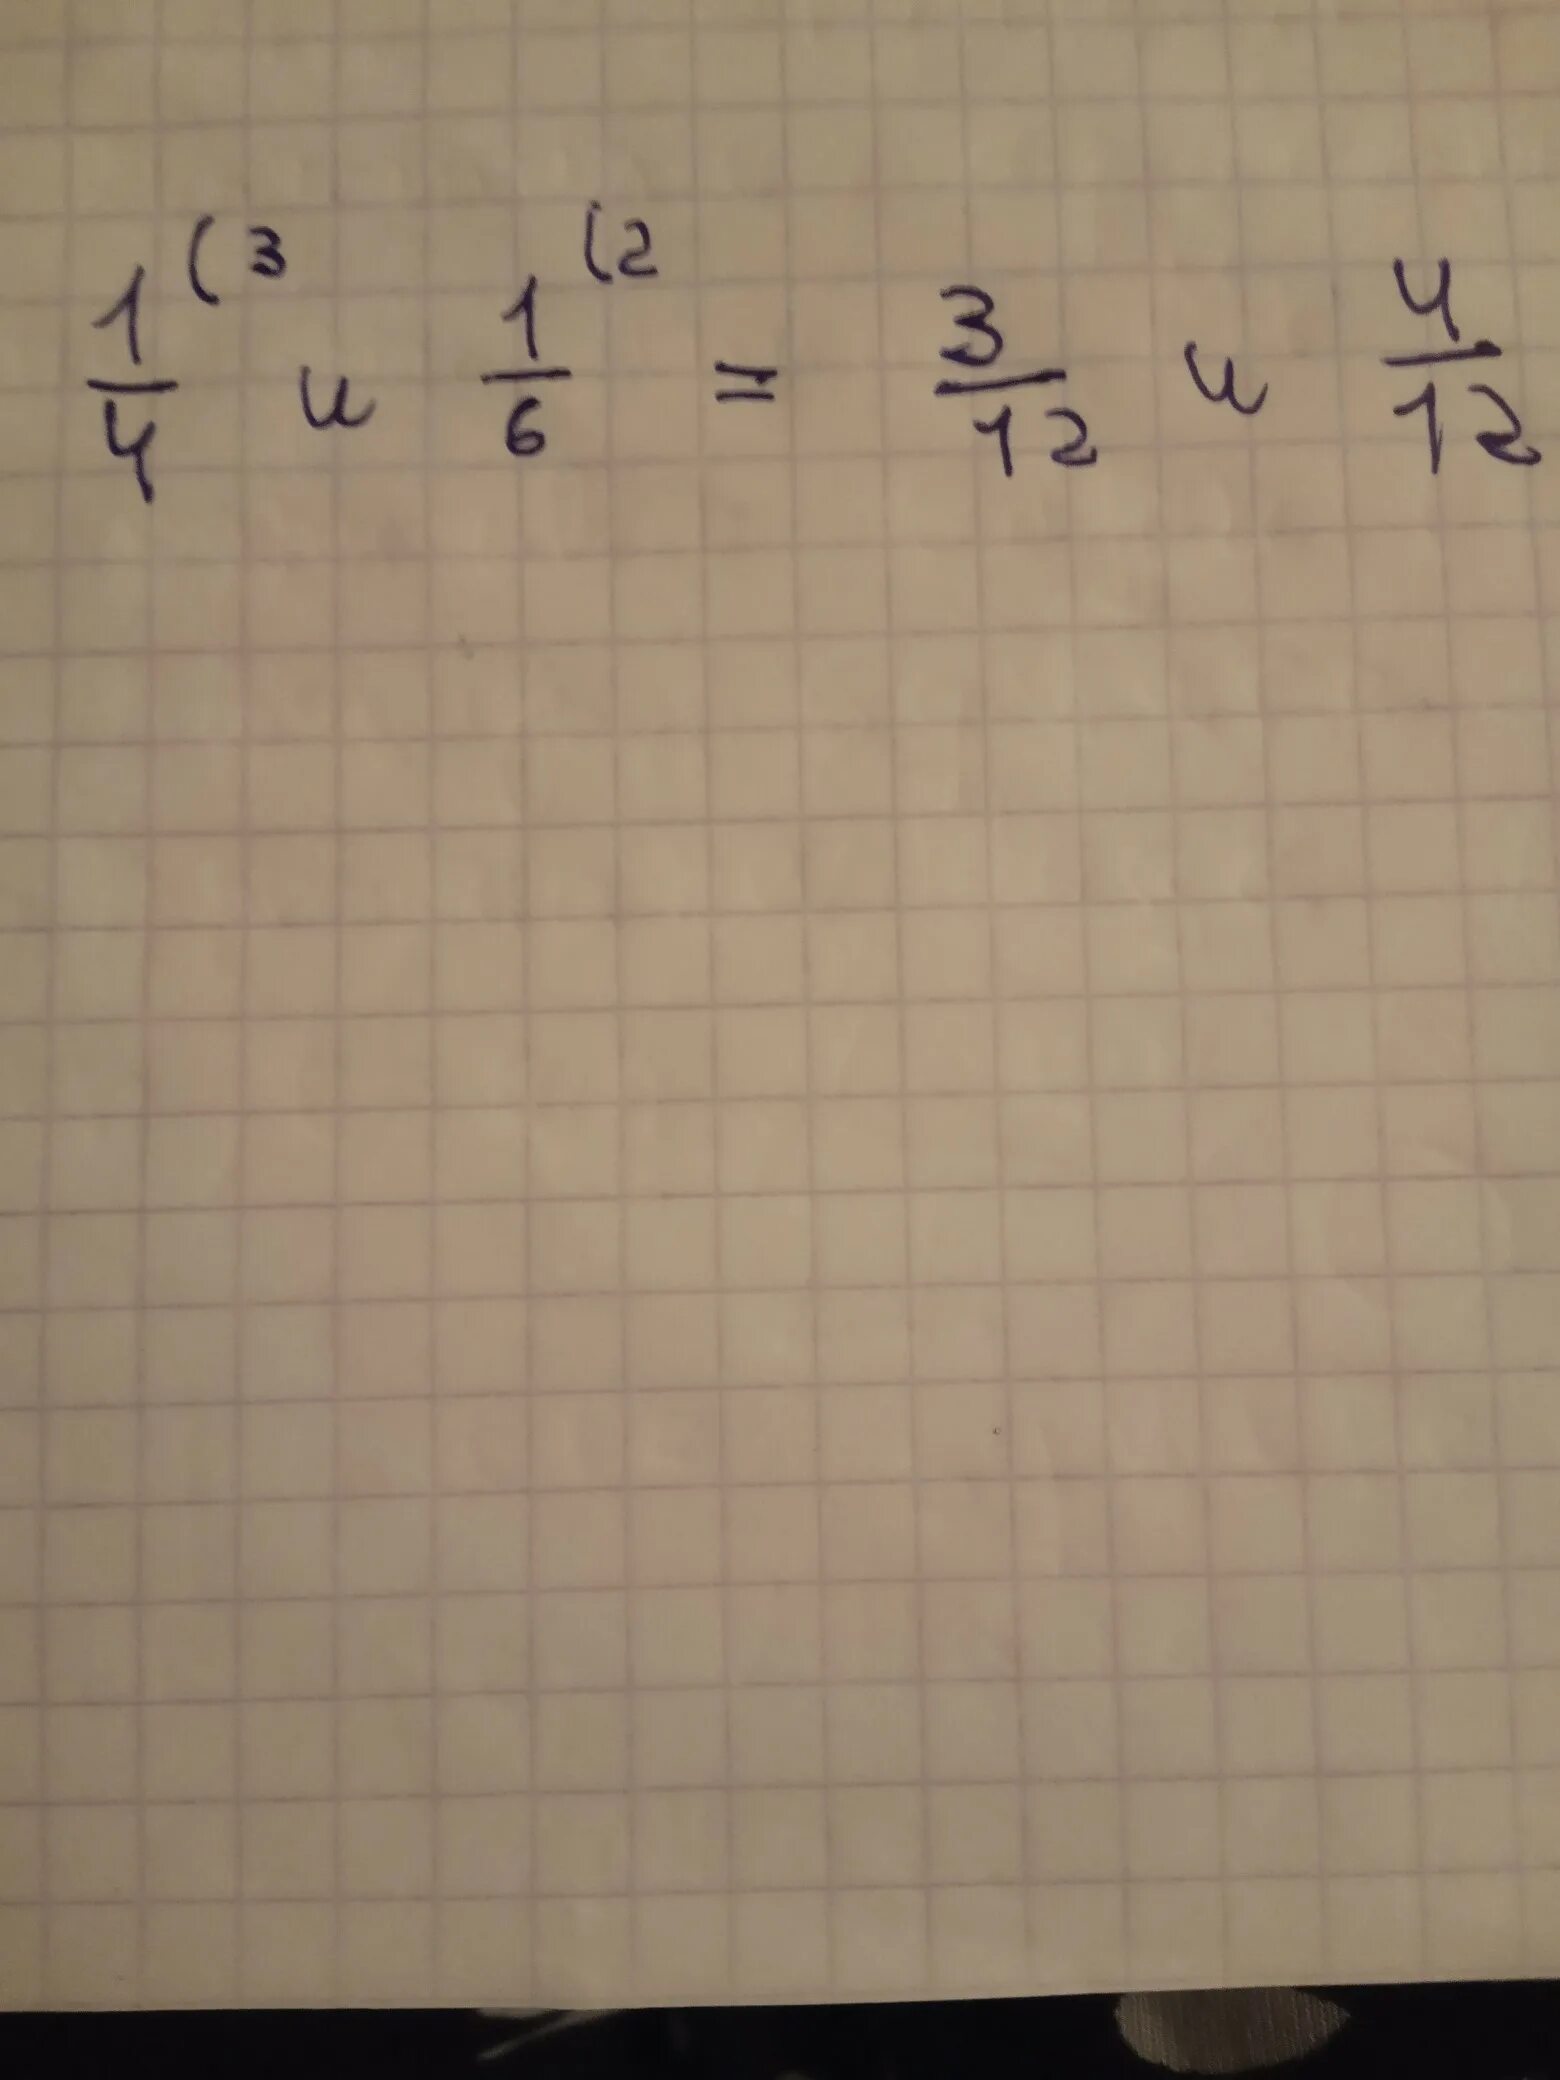 1/4 (3 и 1/6 (2 = 3/12 и 4/12